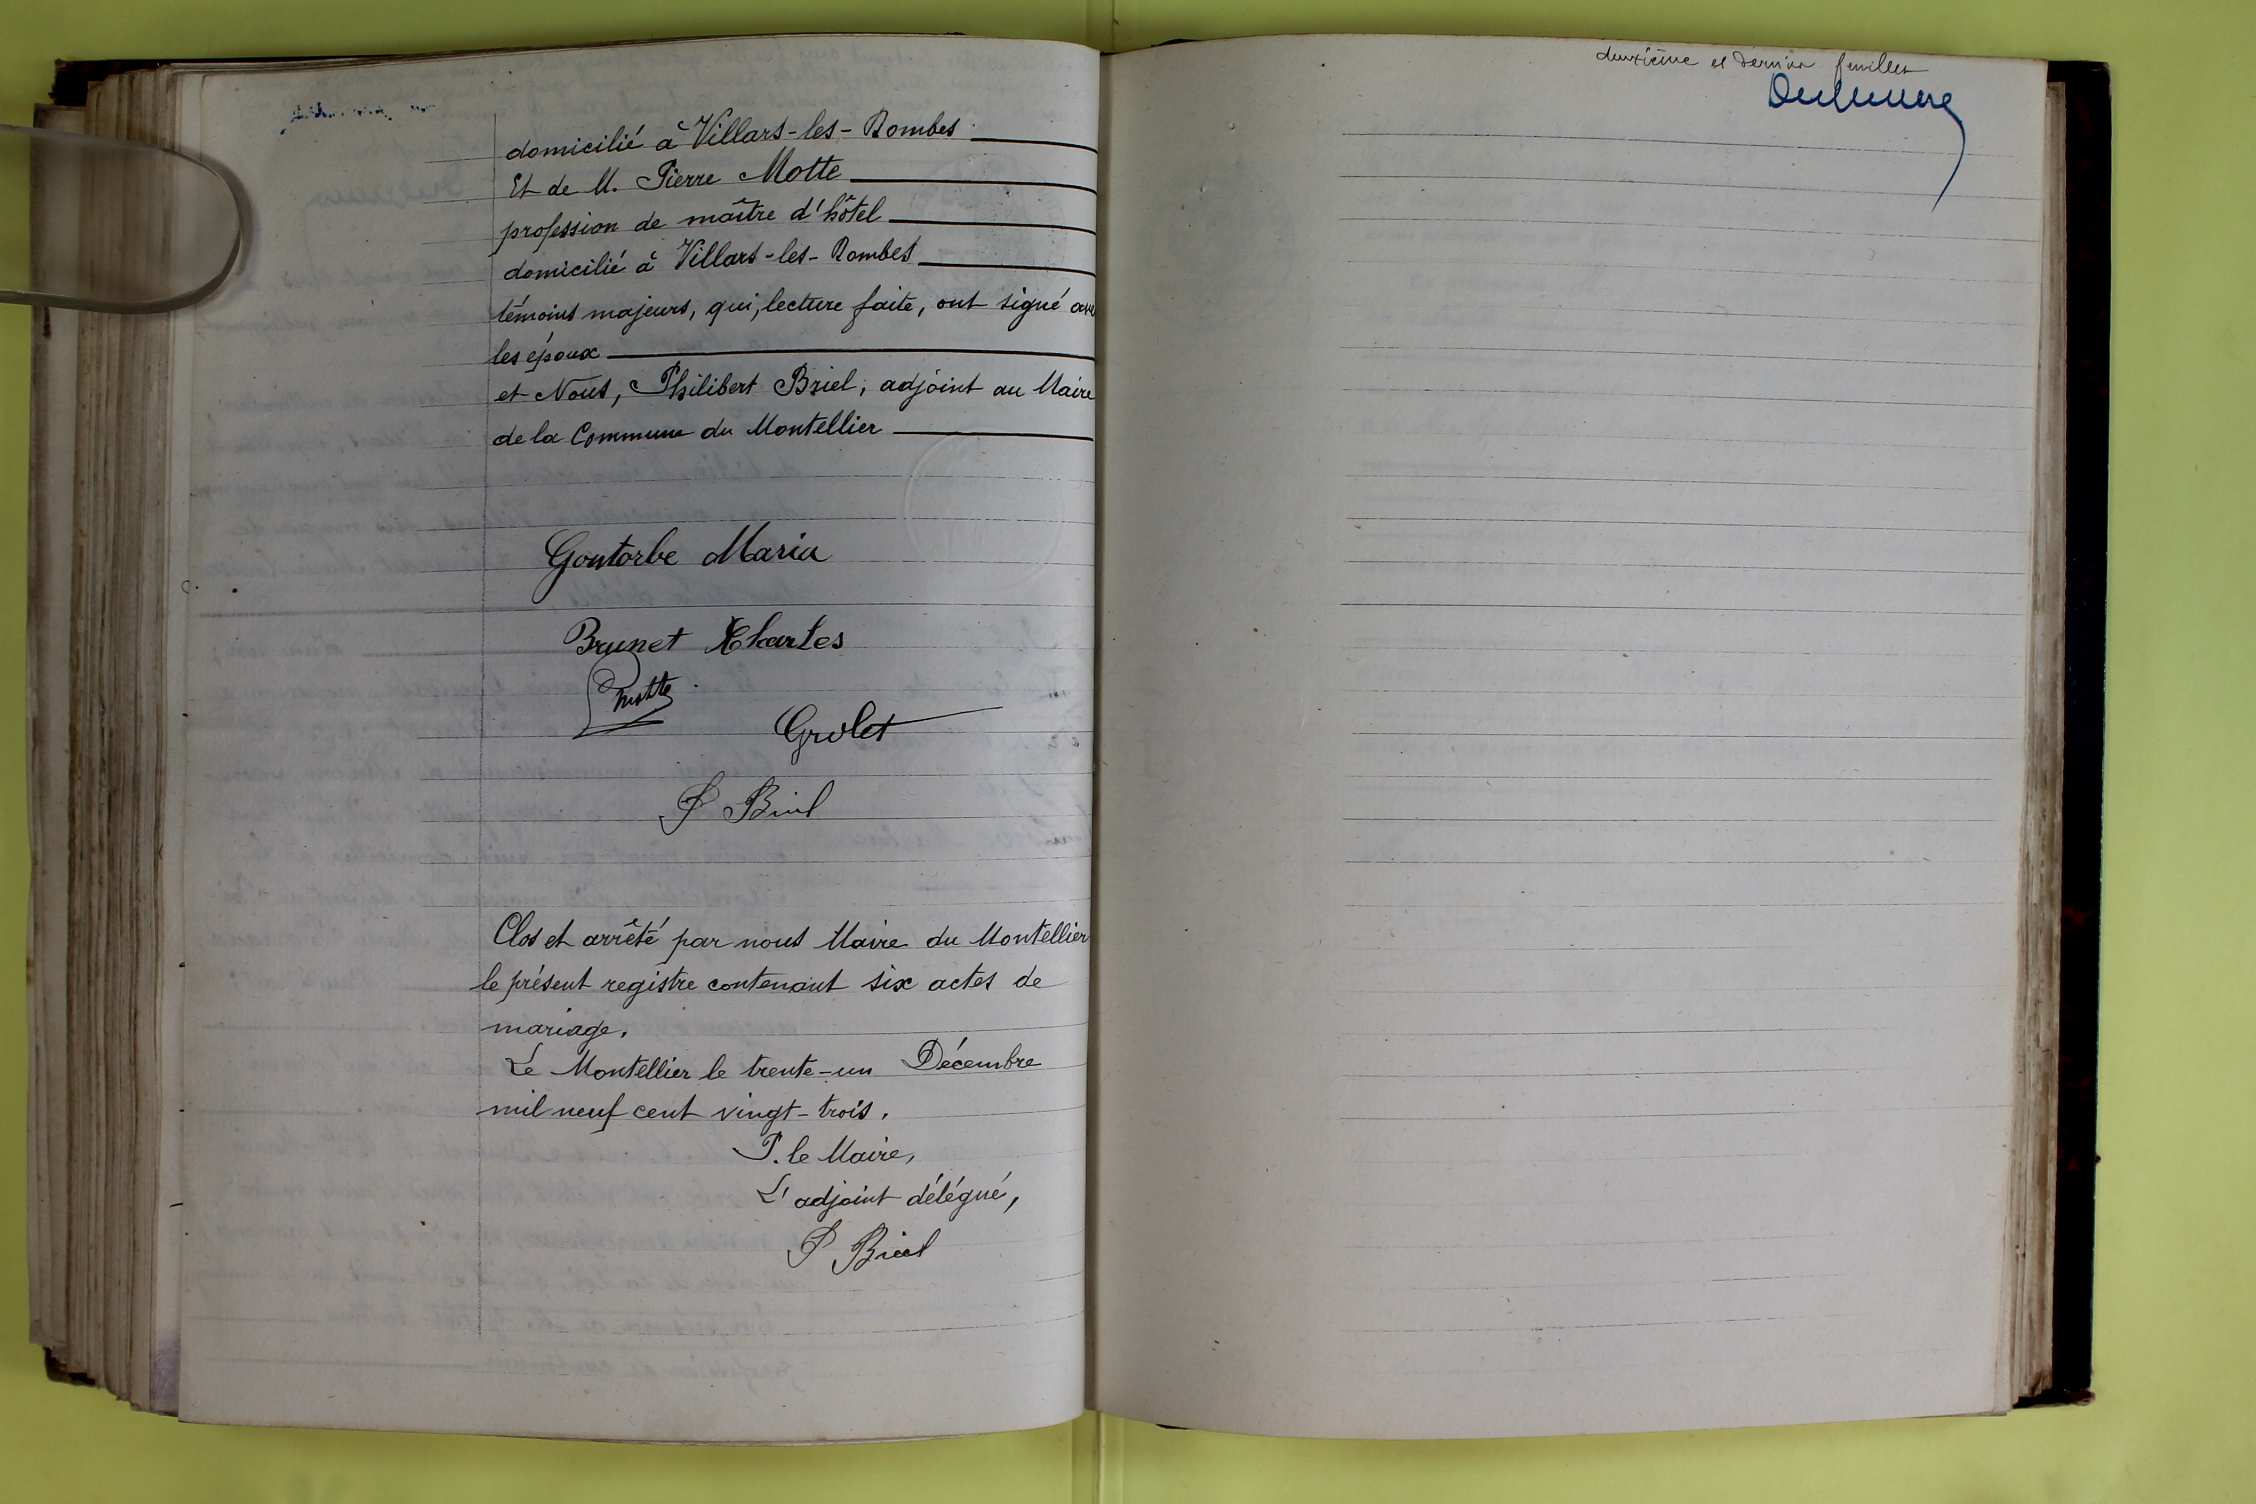 domicilié à Villars-les-Dombes
Et de M. Pierre Motte
profession de maître d'hôtel
domicilié à Villars-les-Dombes
témoins majeurs, qui, lecture faite, ont signé avec
les époux
et Nous, Philibert Briel, adjoint au Maire
de la Commune du Montellier
Goutorbe Maria
Brunet Charles
Motte
Grolet
P Briel
Clos et arrêté par nous Maire du Montellier
le présent registre contenant six actes de
mariage.
Le Montellier le trente-un Décembre
mil neuf cent vingt-trois.
P. le Maire,
L'adjoint délégué,
P Briel
deuxième et dernier feuillet